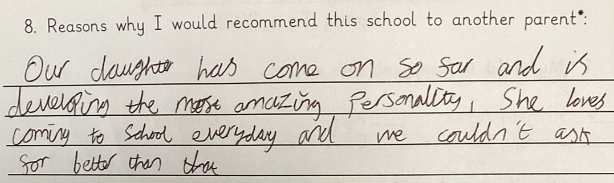 8. Reasons why I would recommend this school to another parent*:
Our daughter has come on so far and is
developing the most amazing personality, She loves
coming to School everyday and we couldn't ask
for better than that